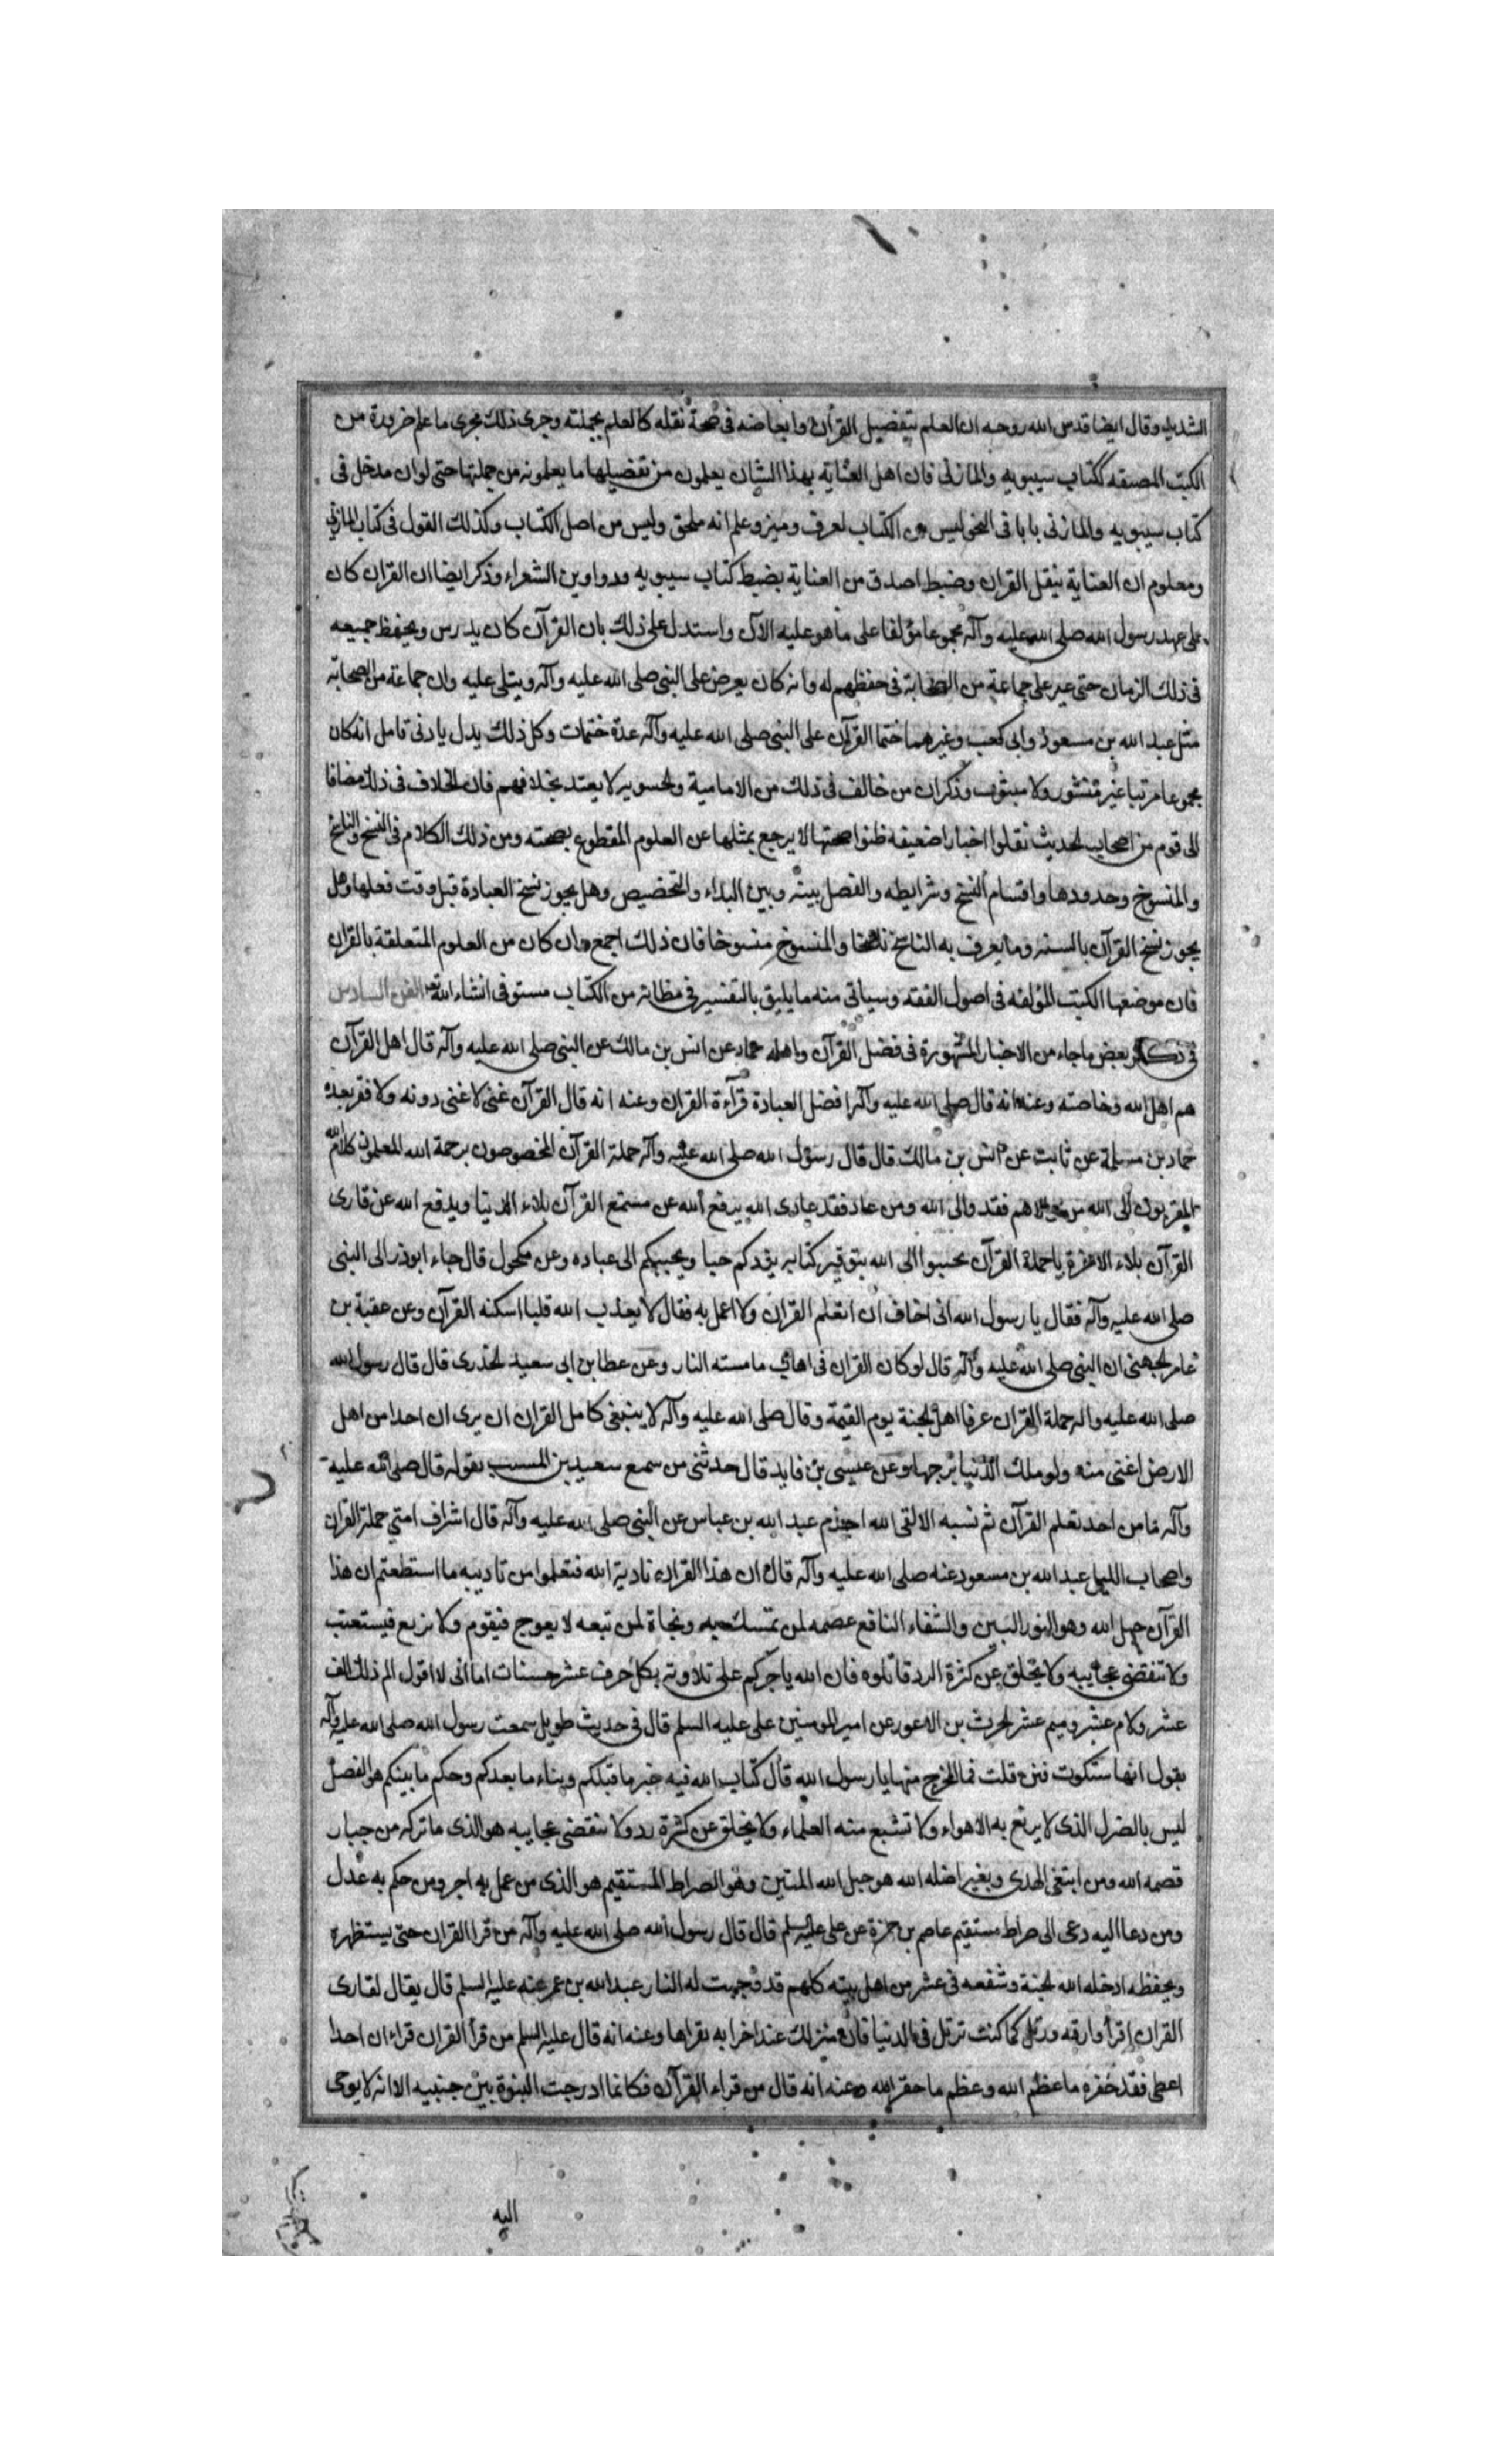 الشديد وقال ايضا قدس الله روحه ان العلم بتفصيل القرآن وابعاضه فى صحة نقله كالعلم بجملته وجرى ذلك مجرى ما علم ضرورة من
الكتب المصنفه ككتاب سيبويه والمازنى فان اهل العناية بهذا الشان يعلمون من تفصيلها ما يعلمونه من جملتها حتى لو ان مدخل فى
كتاب سيبويه والمازنى بابا فى النحو ليس من الكتاب لعرف وميز وعلم انه ملحق وليس من اصل الكتاب وكذلك القول فى كتاب المازنى
ومعلوم ان العناية بنقل القران وضبط اصدق من العناية بضبط كتاب سيبويه ودواوين الشعراء وذكر ايضا ان القران كان
على عهد رسول الله صلى الله عليه وآله مجموعا مؤلفا على ما هو عليه الآن واستدل على ذلك بان القرآن كان يدرس ويحفظ جميعه
فى ذلك الزمان حتى عير على جماعة من الصحابة فى حفظهم له وانه كان يعرض على النبى صلى الله عليه وآله ويتلى عليه وان جماعة من الصحابة
مثل عبد الله بن مسعود وابى كعب وغيرهما ختما القرآن على النبى صلى الله عليه وآله عدة ختمات وكل ذلك يدل يادنى تامل انه كان
مجموعا مرتبا غير منثور ولا مبثوث وذكر ان من خالف فى ذلك من الامامية ولحسويه لا يعتد بخلافهم فان الخلاف فى ذلك مضافا
الى قوم من اصحاب لحديث نقلوا اخبارا ضعيفه ظنوا صحتها لا يرجع بمثلها عن العلوم المقطوع بصحته ومن ذلك الكلام فى النسخ والناسخ
والمنسوخ وحدودها واقسام النسخ وشرايطه والفصل بينه وبين البداء والتخصيص وهل يجوز نسخ العبادة قبل وقت فعلها وهل
يجوز نسخ القرآن بالسنه وما يعرف به الناسخ ناسخا والمنسوخ منسوخا فان ذلك اجمع وان كان من العلوم المتعلقة بالقران
فان موضعها الكتب المؤلفه فى اصول الفقه وسياتى منه ما يليق بالتفسير فى مظانه من الكتاب مستوفى انشاء الله تعه الفن السادس
فى ذكر بعض ما جاء من الاخبار المشهورة فى فضل القرآن واهله حماد عن انس بن مالك عن النبى صلى الله عليه وآله قال اهل القرآن
هم اهل الله وخاصته وعنه انه قال صلى الله عليه وآله افضل العبادة قرآءة القران وعنه انه قال القرآن غنى لا غنى دونه ولا فقر بعده
حماد بن مسلمة عن ثابت عن انس بن مالك قال قال رسول الله صلى الله عليه وآله حملة القرآن المخصوصون برحمة الله المعلمون كلام الله
المقربون الى الله من والاهم فقد والى الله ومن عاد فقد عادى الله يدفع الله عن مستمع القرآن بلاء الدنيا ويدفع الله عن قارى
القرآن بلاء الاخرة يا حملة القرآن تحببوا الى الله بتوقير كتابه يزدكم حبا ويحببكم الى عباده وعن مكحول قال جاء ابوذر الى النبى
صلى الله عليه وآله فقال يا رسول الله انى اخاف ان اتعلم القران ولا اعمل به فقال لا يعذب الله قلبا اسكنه القرآن وعن عقبة بن
عامر لجهنى ان النبى صلى الله عليه وآله قال لو كان القران فى اهاب ما مسته النار وعن عطا بن ابى سعيد لخدرى قال قال رسول الله
صلى الله عليه واله حملة القران عرفا اهل لجنة يوم القيمة وقال صلى الله عليه وآله لا ينبغى كامل القران ان يرى ان احدا من اهل
الارض اغنى منه ولو ملك الدنيا برجها وعن عيسى بن فايد قال حدثنى من سمع سعيد بن المسيب بقوله قال صلى الله عليه
وآله ما من احد تعلم القرآن ثم نسيه الا لقى الله اجذم عبد الله بن عباس عن النبى صلى الله عليه وآله قال اشراف امتي حملة القران
واصحاب الليل عبد الله بن مسعود عنه صلى الله عليه وآله قال ان هذا القران تادية الله فتعلموا من تاديبه ما استطعتم ان هذا
القرآن حبل الله وهو النور البين والشفاء النافع عصمه لمن تمسك به ونجاة لمن تبعه لا يعوج فيقوم ولا يزيغ فيستعتب
ولا تنقضى عجايبه ولا يخلق عن كثرة الرد فاتلوه فان الله ياجركم على تلاوته بكل حرف عشر حسنات اما انى لا اقول الم ذلك الف
عشر ولام عشر وميم عشر لحرث بن الاعور عن امير المومنين على عليه السلم قال فى حديث طويل سمعت رسول الله صلى الله عليه وآله
يقول انها ستكون فتن قلت فما المخرج منها يا رسول الله قال كتاب الله فيه خبر ما قبلكم ونباء ما بعدكم وحكم ما بينكم هو الفصل
ليس بالهزل الذى لا يزيغ به الاهواء ولا تشبع منه العلماء ولا يخلق عن كثرة رد ولا تنقضى عجايبه هو الذى ما تركه من جبار
قصمه الله ومن ابتغى الهدى وبغير اضله الله هو حبل الله المتين وهو الصراط المستقيم هو الذى من عمل به اجر ومن حكم به عدل
ومن دعا اليه دعى الى صراط مستقيم عاصم بن حمزة عن على عليه السلم قال قال رسول الله صلى الله عليه وآله من قرا القران حتى يستظهره
ويحفظه ادخله الله لجنة وشفعه فى عشر من اهل بيته كلهم قد وجبت له النار عبد الله بن عمر عنه عليه السلم قال يقال لقارى
القران اقرأ وارقه ورتل كما كنت ترتل فى الدنيا فان منزلك عند اخرايه بقراها وعنه انه قال عليه السلم من قرأ القران فراى ان احدا
اعطى فقد حقره ما عظم الله وعظم ما حقر الله وعنه انه قال من قراء القرآن فكانما ادرجت النبوة بين جنبيه الا انه لا يوحى
اليه